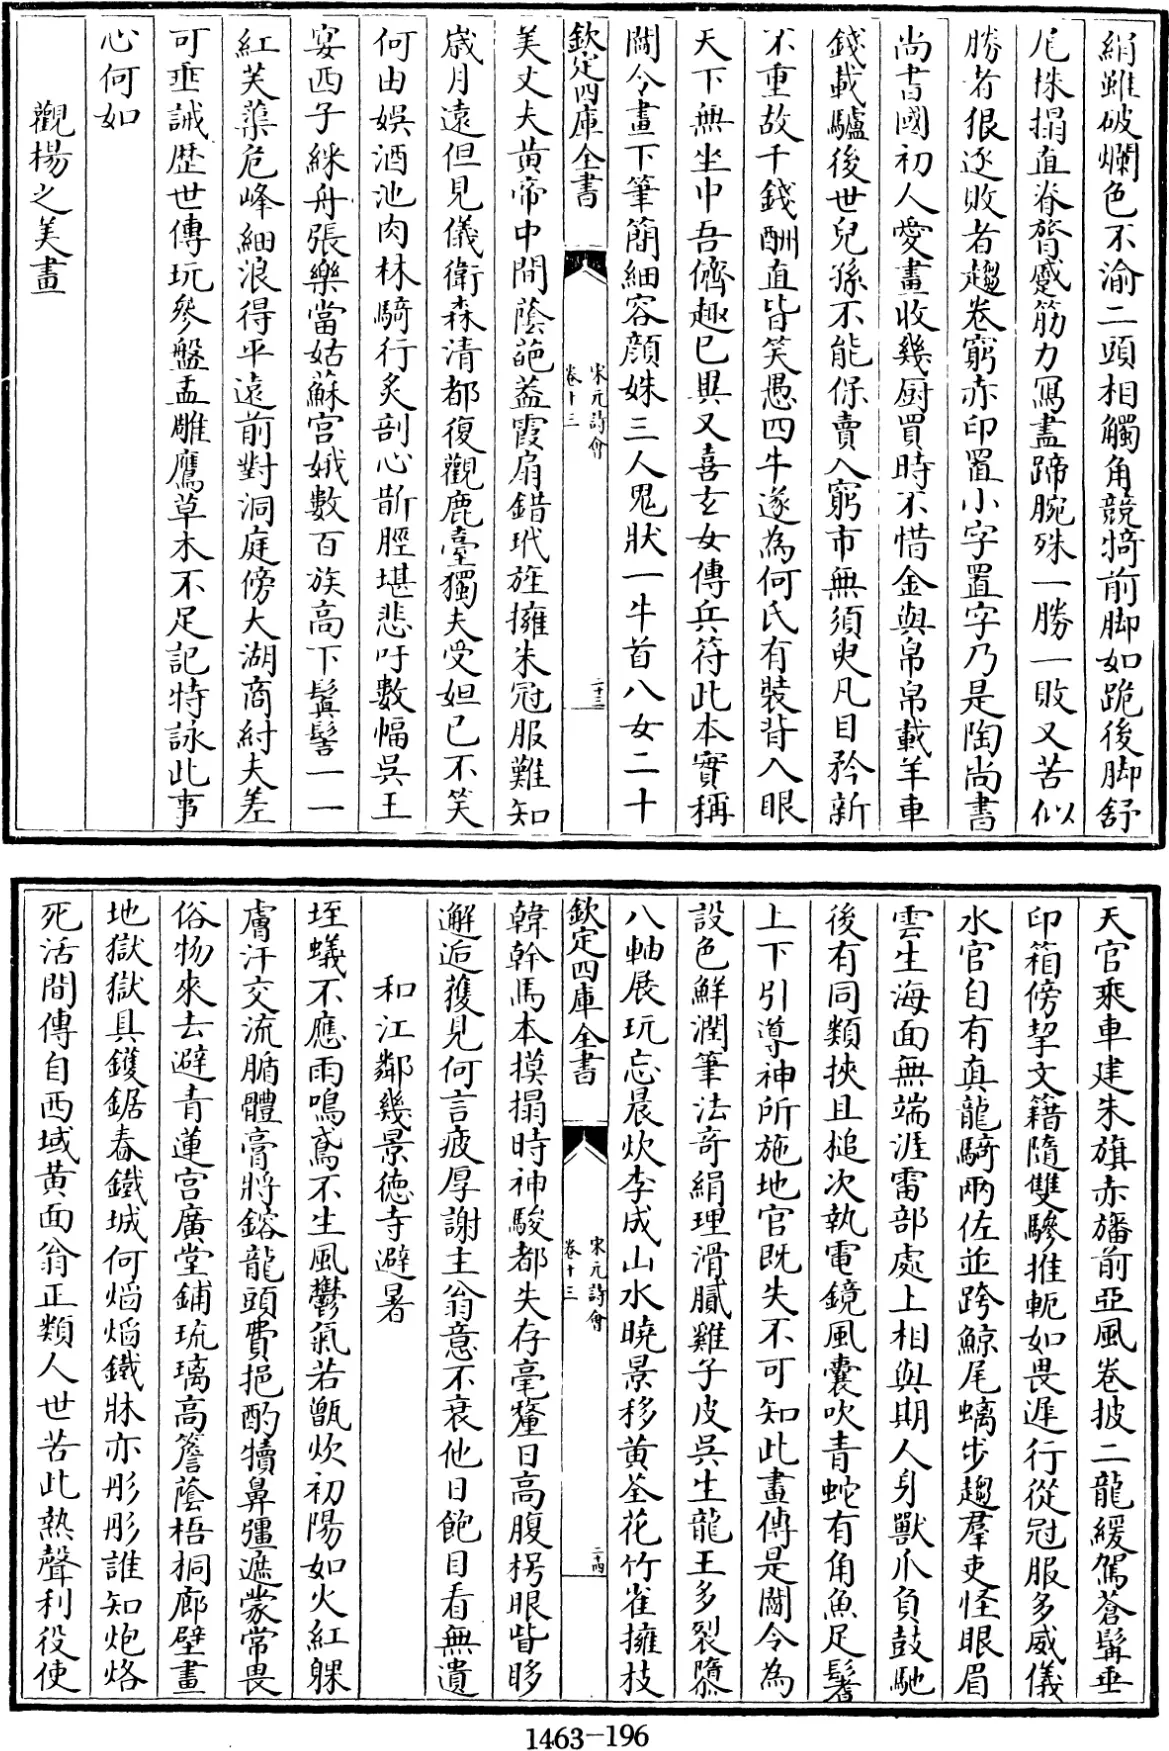 絹雖破爛色不渝二頭相觸角競掎前脚如跪後脚舒
尾株搨直脊膂蹙筋力寫盡蹄腕殊一勝一敗又苦似
勝者狠逐敗者趨卷窮赤印置小字置字乃是陶尚書
尚書國初人愛畫收幾厨買時不惜金與帛帛載羊車
錢載驢後世兒孫不能保賣入窮市無須臾凡目矜新
不重故千錢酬直皆笑愚四牛遂為何氏有裝背入眼
天下無坐中吾儕趣已異又喜玄女傳兵符此本實稱
閻令畫下筆簡細容顔姝三人鬼狀一牛首八女二十
欽定四庫全書
宋元詩會
卷十三
二十三
美丈夫黄帝中間蔭葩蓋霞扇錯玳旌擁朱冠服難知
歲月遠但見儀衛森清都復觀鹿臺獨夫受妲已不笑
何由娯酒池肉林騎行炙剖心斮脛堪悲吁數幅吳王
宴西子綵舟張樂當姑蘇宫娥數百族高下鬂髻一一
紅芙蕖危峰細浪得平遠前對洞庭傍大湖商紂夫差
可垂誡歴世傳玩參盤盂雕鷹草木不足記特詠此事
心何如
觀楊之美畫
天官乘車建朱旗赤旛前亞風卷披二龍緩駕蒼髯垂
印箱傍挈文籍隨雙驂推軛如畏遲行從冠服多威儀
水官自有真龍騎兩佐並跨鯨尾螭步趨羣吏怪眼眉
雲生海面無端涯雷部處上相與期人身獸爪負鼓馳
後有同類挾且槌次執電鏡風囊吹青蛇有角魚足鬐
上下引導神所施地官既失不可知此畫傳是閻令為
設色鮮潤筆法竒絹理滑膩雞子皮吳生龍王多裂隳
八軸展玩忘晨炊李成山水曉景移黄荃花竹雀擁枝
欽定四庫全書
宋元詩會
卷十三
二十四
韓幹馬本摸搨時神駿都失存毫釐日高腹枵眼眥眵
邂逅獲見何言疲厚謝主翁意不衰他日飽目看無遺
和江鄰幾景德寺避暑
垤蟻不應雨鳴鳶不生風鬱氣若甑炊初陽如火紅躶
膚汗交流腯體膏將鎔龍頭費挹酌犢鼻疆遮蒙常畏
俗物來去避青蓮宫廣堂鋪琉璃高簷蔭梧桐廊壁畫
地獄獄具鑊鋸舂鐵城何熖熖鐵牀亦彤彤誰知炮烙
死活間傳自西域黄面翁正類人世苦此熱聲利役使
1463-196